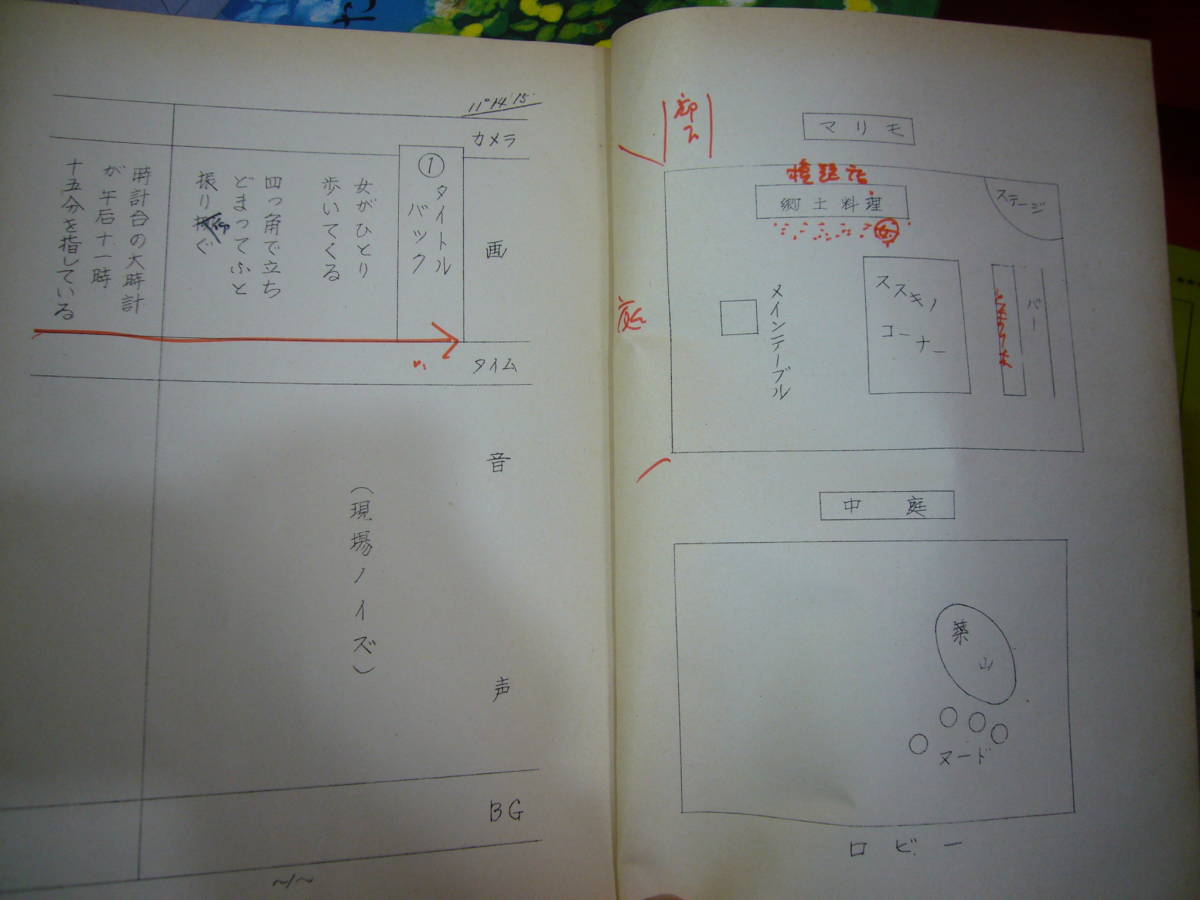 11°14'15"
カメラ
画
タイム
音
声
BG
①
タイトル
バック
女がひとり
歩いてくる
四つ角で立ち
どまってふと
振り仰ぐ
時計台の大時計
が午后十一時
十五分を指している
（現場ノイズ）
~1~
マリモ
ステージ
郷土料理
バー
ススキノ
コーナー
メインテーブル
庭
中庭
築山
ヌード
ロビー